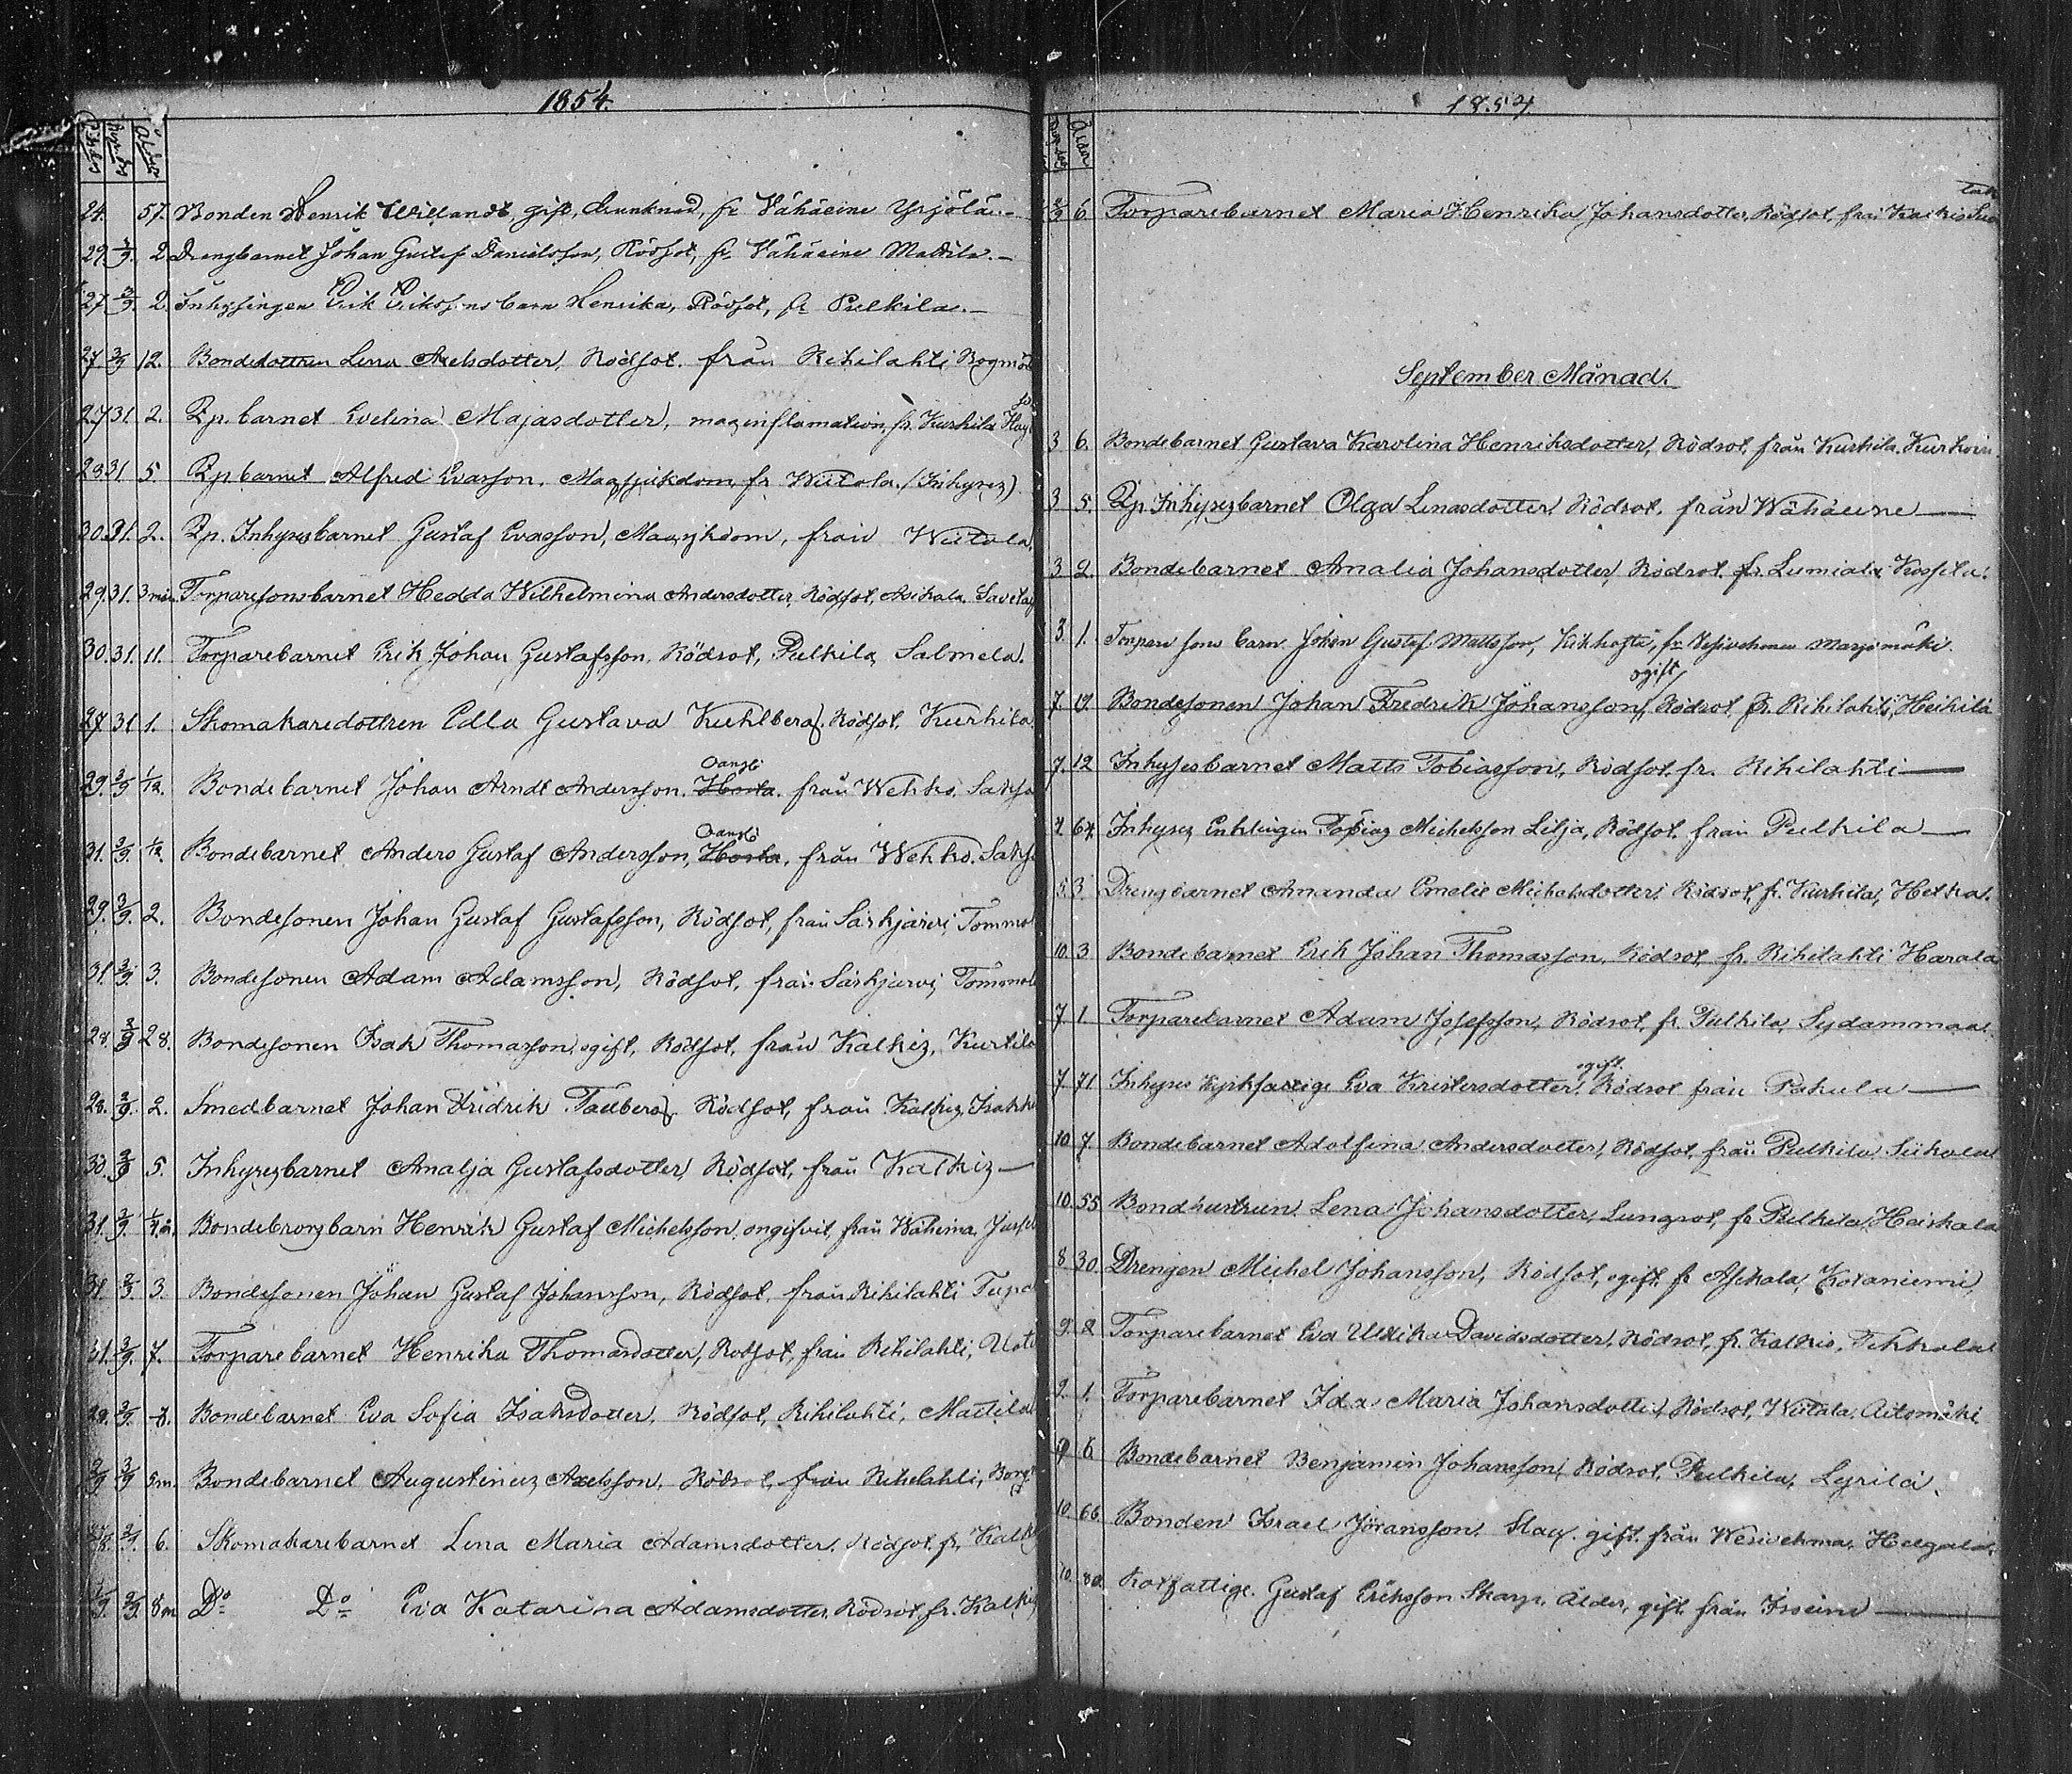 1854.
Ålder
24. 57. Bonden Henrik Willandt, gift, drunknad, fr Vähäeine Yrjölä.
29. 3/9. 2. Drengbarnet Johan Gustaf Danielsson, Rödsot, fr. Vähäeine Mattila.
27. 3/9. 2. Inhysingen Erik Erikssons barn Henrika, Rödsot, fr Pulkila.
27. 3/9 12. Bondedottren Lena Axelsdotter, Rödsot. från Rihilahti
27 31. 2. Qp. barnet Evelina Majasdotter, maginflamation, fr. Kurhila
28 31 5. Qp barnet Alfred Evasson. Magsjukdom, fr Wiitola. (Inhyses)
30. 31. 2. Qp. Inhysesbarnet Gustaf Evasson, Magsjkdom, från Wiitola.
29. 31. 3 mån. Torparesonsbarnet Hedda Wilhelmina Andersdotter, Rödsot, Asikala.
30. 31. 11. Torparebarnet Erik Johan Gustafsson, Rödsot, Pulkila, Salmela.
28 31 1. Skomakaredottren Edla Gustava Kuhlberg, Rödsot. Kurhila.
Oangli
29. 3/9 1/12. Bondebarnet Johan Arndt Andersson. Hosta. från Wehko,
Oangli
31. 3/9. 1/12 Bondebarnet Anders Gustaf Andersson, Hosta, från Wehko.
29. 3/9. 2. Bondesonen Johan Gustaf Gustafsson, Rödsot, från Särkjärvi,
31. 3/9. 3. Bondesonen Adam Adamsson, Rödsot, från Särkjärvi,
28. 3/9 28. Bondesonen Isak Thomasson, ogift, Rödsot, från Kalkis,
28. 3/9. 2. Smedbarnet Johan Fridrik Tallberg, Rödsot, från Kalkis,
30. 3/9 5. Inhysesbarnet Amalja Gustafsdotter, Rödsot, från Kalkis
31. 3/9. Henrik Gustaf Michelsson, ongifvit, från
31. 3/9 3. Bondesonen Johan Gustaf Johansson, Rödsot, från Rihilahti
31. 3/9. 7. Torparebarnet Henrika Thomasdotter, Rödsot, från Rihilahti,
29. 3/9. 8. Bondebarnet Eva Sofia Isaksdotter, Rödsot, Rihilahti, Mattila
3/9 5m. Bondebarnet Augustinus Axelsson, Rödsot, från Rihilahti,
3/9. 6. Skomakarebarnet Lena Maria Adamsdotter, Rödsot, fr.
1/9. 3/9. 8m Do Do Eva Katarina Adamsdotter, Rödsot, fr. Kalkis
1854.
Ålder
6 Torparebarnet Maria Henrika Johansdotter, Rödsot, från Kalkis
September Månad.
3 6. Bondebarnet Gustava Karolina Henriksdotter, Rödsot, från Kurhila,
3. 5. Qp Inhysesbarnet Olga Lenasdotter, Rödsot, från Wähäeine
3 2. Bondebarnet Amalia Johansdotter, Rödsot. fr. Lumiala
3. 1. Torpare sons barn Johan Gustaf Mattsson, Kikhosta, fr Marjomäki.
ogift
7. 19. Bondesonen Johan Fredrik Johansson, Rödsot fr. Rihilahti, Heikilä
7. 12 Inhysesbarnet Matts Tobiasson, Rödsot fr. Rihilahti
7. 67. Inhyses Enklingen Tobias Michelsson Lilja, Rödsot, från Pulkila
5. 3. Drengbarnet Amanda Emelie Michelsdotter, Rödsot, fr. Kurhila,
10. 3 Bondebarnet Erik Johan Thomasson, Rödsot, fr. Rihilahti Harala
7. 1. Torparebarnet Adam Josefsson, Rödsot, fr. Pulkila, Sydanmaa.
ogift.
7. 71 Inhyses Kyrkfattige Eva Kristersdotter, Rödsot från Pakula
10. 7. Bondebarnet Adolfina Andersdotter, Rödsot, från Pulkila Siikala
10. 55 Bondhustrun Lena Johansdotter, Lungsot, fr Pulkila, Haiskala
8. 30. Drengen Michel Johansson, Rödsot, ogift fr Asikala, Kotaniemi,
9. 2 Torparebarnet Eva Ulrika Davidsdotter, Rödsot, fr. Kalkis,
9. 1. Torparebarnet Ida Maria Johansdotter, Rödsot, Aitomäki
9 6 Bondebarnet Benjamin Johansson, Rödsot, Pulkila, Lyrilä.
10. 66. Bonden Israel Jöransson Slag. gift. från Wesivehma,
10. 80. Rotfattige Gustaf Eriksson Skarp. Ålder, gift, från